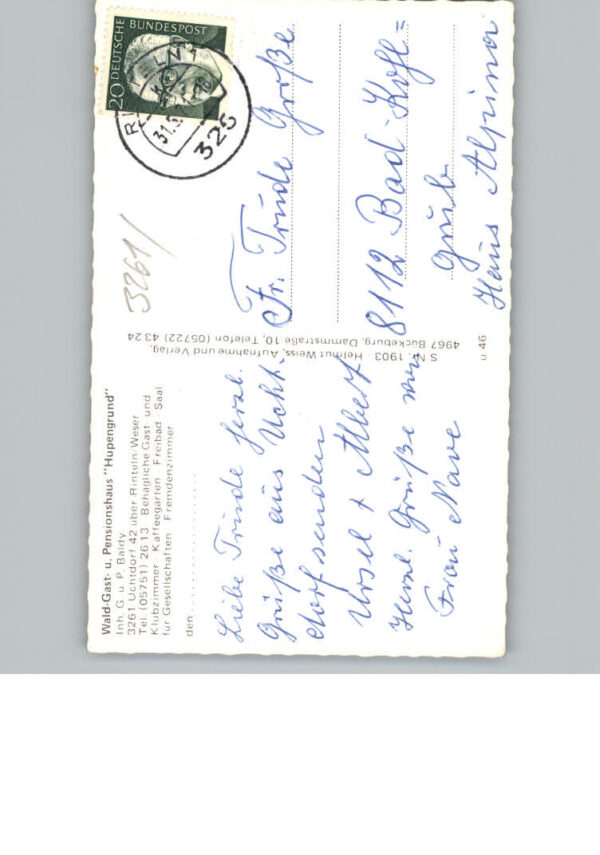 Wald-Gast- u. Pensionshaus "Hupengrund"
Inh. G. u. P. Baldy
3261 Uchtdorf 42 über Rinteln Weser
Tel. (05751) 26 13 Behagliche Gast- und
Klubzimmer - Kaffeegarten - Freibad - Saal
für Gesellschaften - Fremdenzimmer
den
Liebe Trude herzl.
Grüße aus Ucht-
dorf senden
Ursel + Albert
Herzl. Grüße von
Frau Nave
S Nr. 1903 · Helmut Weiss, Aufnahme und Verlag,
4967 Bückeburg, Dammstraße 10, Telefon (05722) 43 24
u 46
3261/
20 DEUTSCHE BUNDESPOST
326
Fr. Trude Große
8112 Bad Kohl=
grub
Haus Alpina